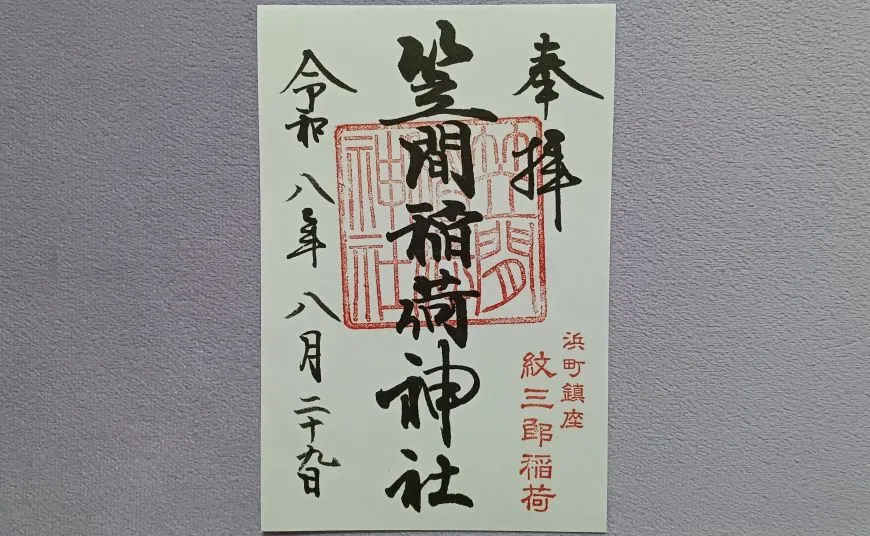 奉拝
浜町鎮座
紋三郎稲荷
笠間稲荷神社
笠間
稲荷
神社
令和八年八月二十九日